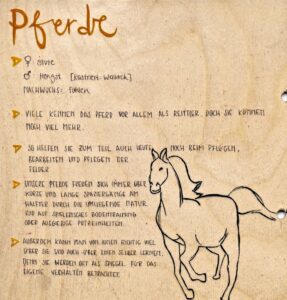 Pferde
♀ Stute
♂ Hengst [kastriert: Wallach]
NACHWUCHS: Fohlen
VIELE KENNEN DAS PFERD VOR ALLEM ALS REITTIER. DOCH SIE KÖNNEN
NOCH VIEL MEHR.
SO HELFEN SIE ZUM TEIL AUCH HEUTE NOCH BEIM PFLÜGEN,
BEARBEITEN UND PFLEGEN DER
FELDER
UNSERE PFERDE FREUEN SICH IMMER ÜBER
KURZE UND LANGE SPAZIERGÄNGE AM
HALFTER DURCH DIE UMLIEGENDE NATUR
UND AUF SPIELERISCHES BODENTRAINING
ODER AUSGIEBIGE PUTZEINHEITEN.
AUSSERDEM KANN MAN VON IHNEN RICHTIG VIEL
ÜBER SIE UND AUCH ÜBER EINEN SELBER LERNEN,
DENN SIE WERDEN OFT ALS SPIEGEL FÜR DAS
EIGENE VERHALTEN BETRACHTET.